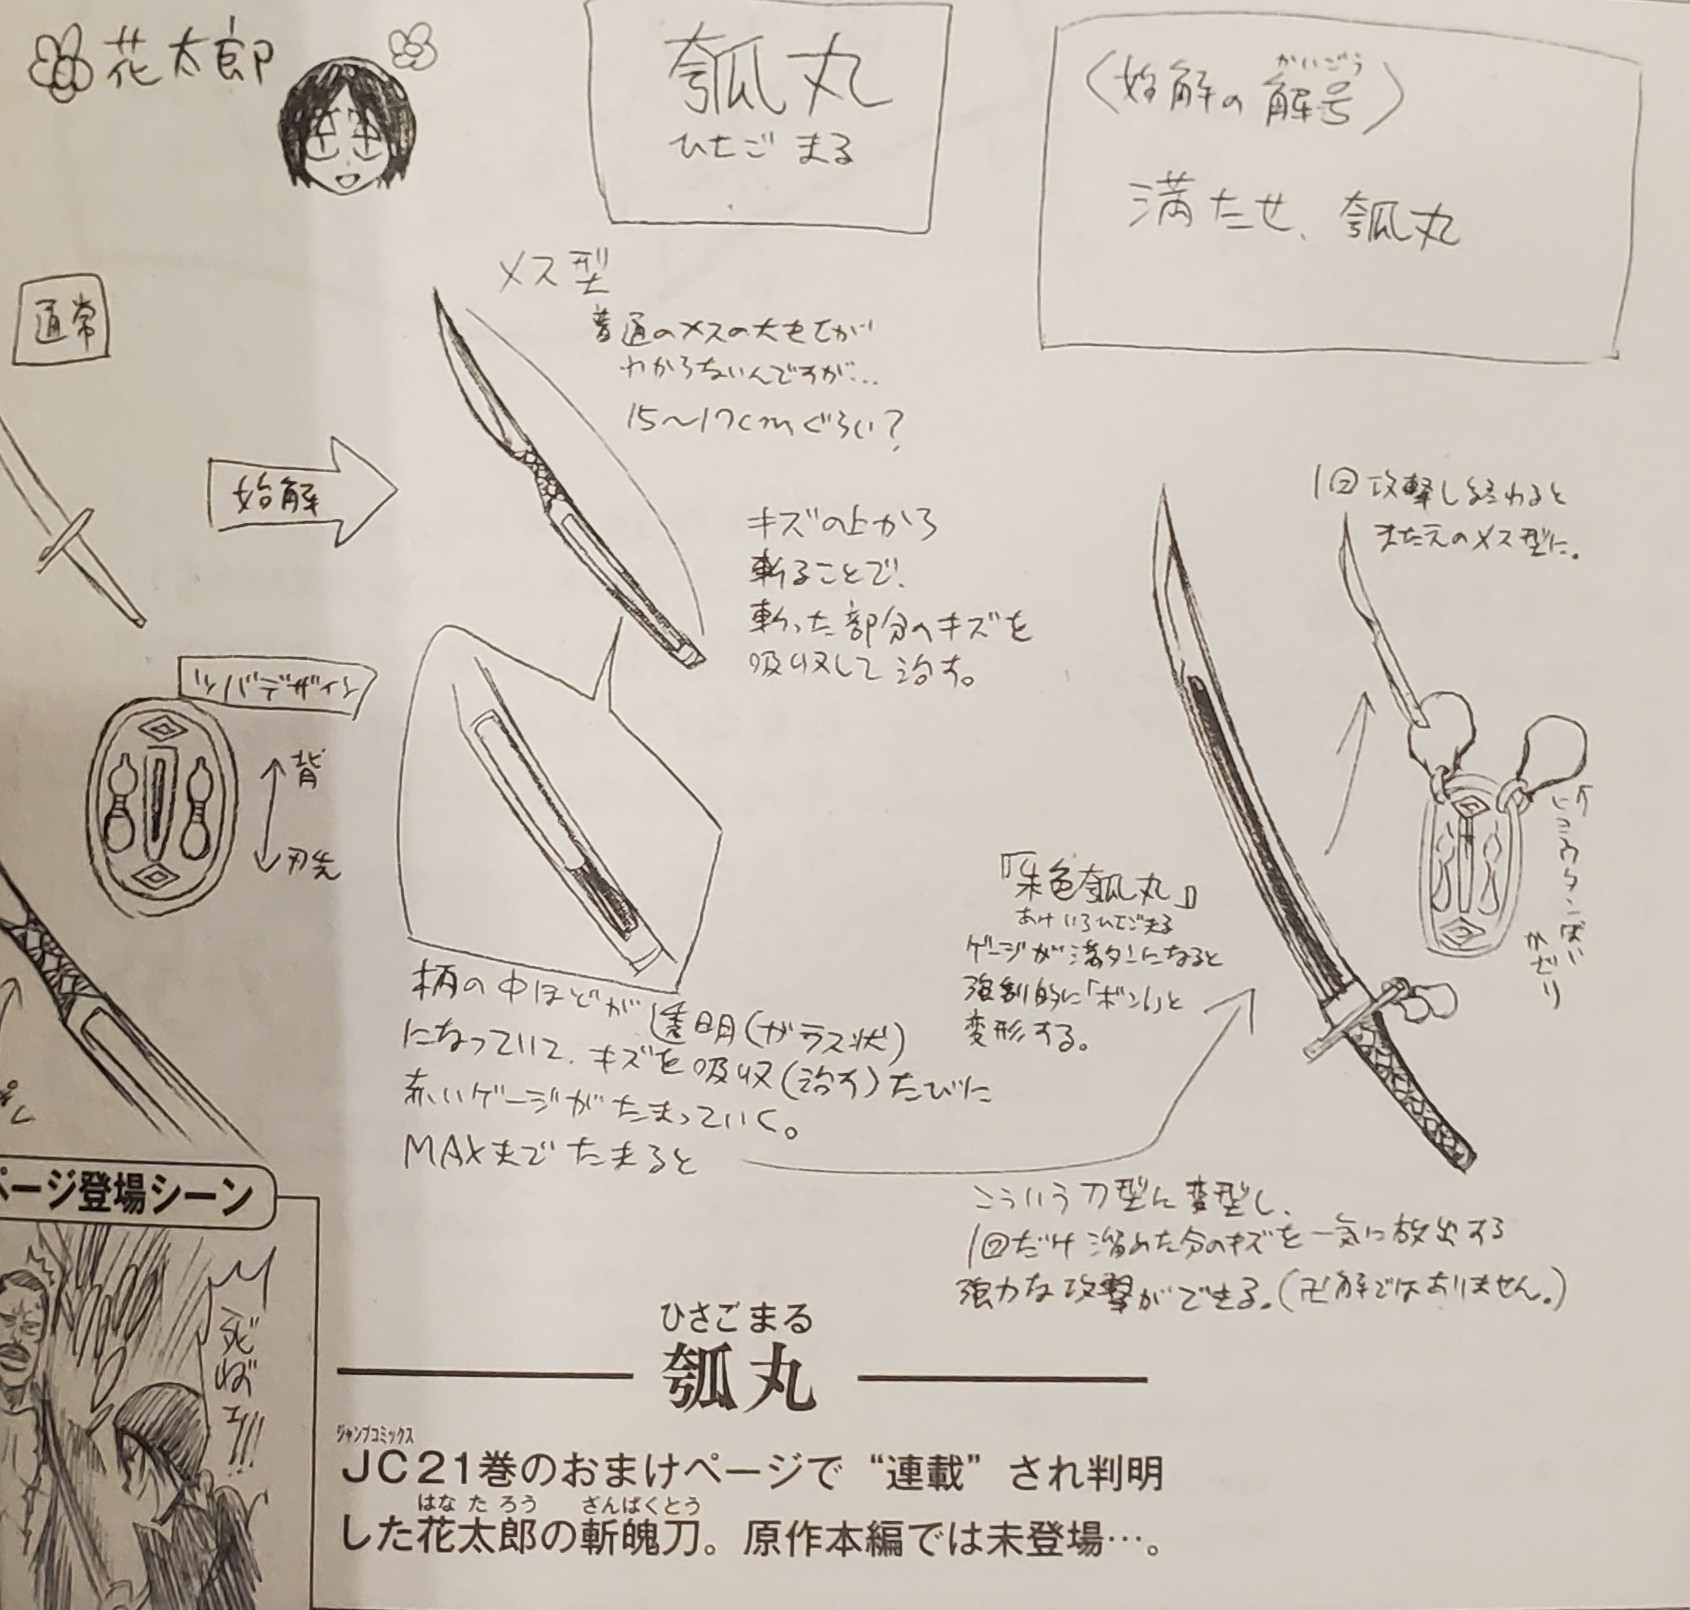 花太郎
瓠丸
ひさごまる
〈始解の解号〉
かいごう
満たせ、瓠丸
通常
始解
メス型
普通のメスの大きさが
わからないんですが…
15〜17cmぐらい？
キズの上から
斬ることで、
斬った部分のキズを
吸収して治す。
ツバデザイン
背
刃先
柄の中ほどが透明(ガラス状)
になっていて、キズを吸収(治す)たびに
赤いゲージがたまっていく。
MAXまでたまると
1回攻撃し終わると
また元のメス型に。
ヒョウタンぽい
かざり
『朱色瓠丸』
あけいろひさごまる
ゲージが満タンになると
強制的に「ボン！」と
変形する。
こういう刀型に変型し、
1回だけ溜めた分のキズを一気に放出する
強力な攻撃ができる。(卍解ではありません。)
ページ登場シーン
死ねェ!!!
ひさごまる
瓠丸
ジャンプコミックス
JC21巻のおまけページで“連載”され判明
はなたろう ざんぱくとう
した花太郎の斬魄刀。原作本編では未登場…。